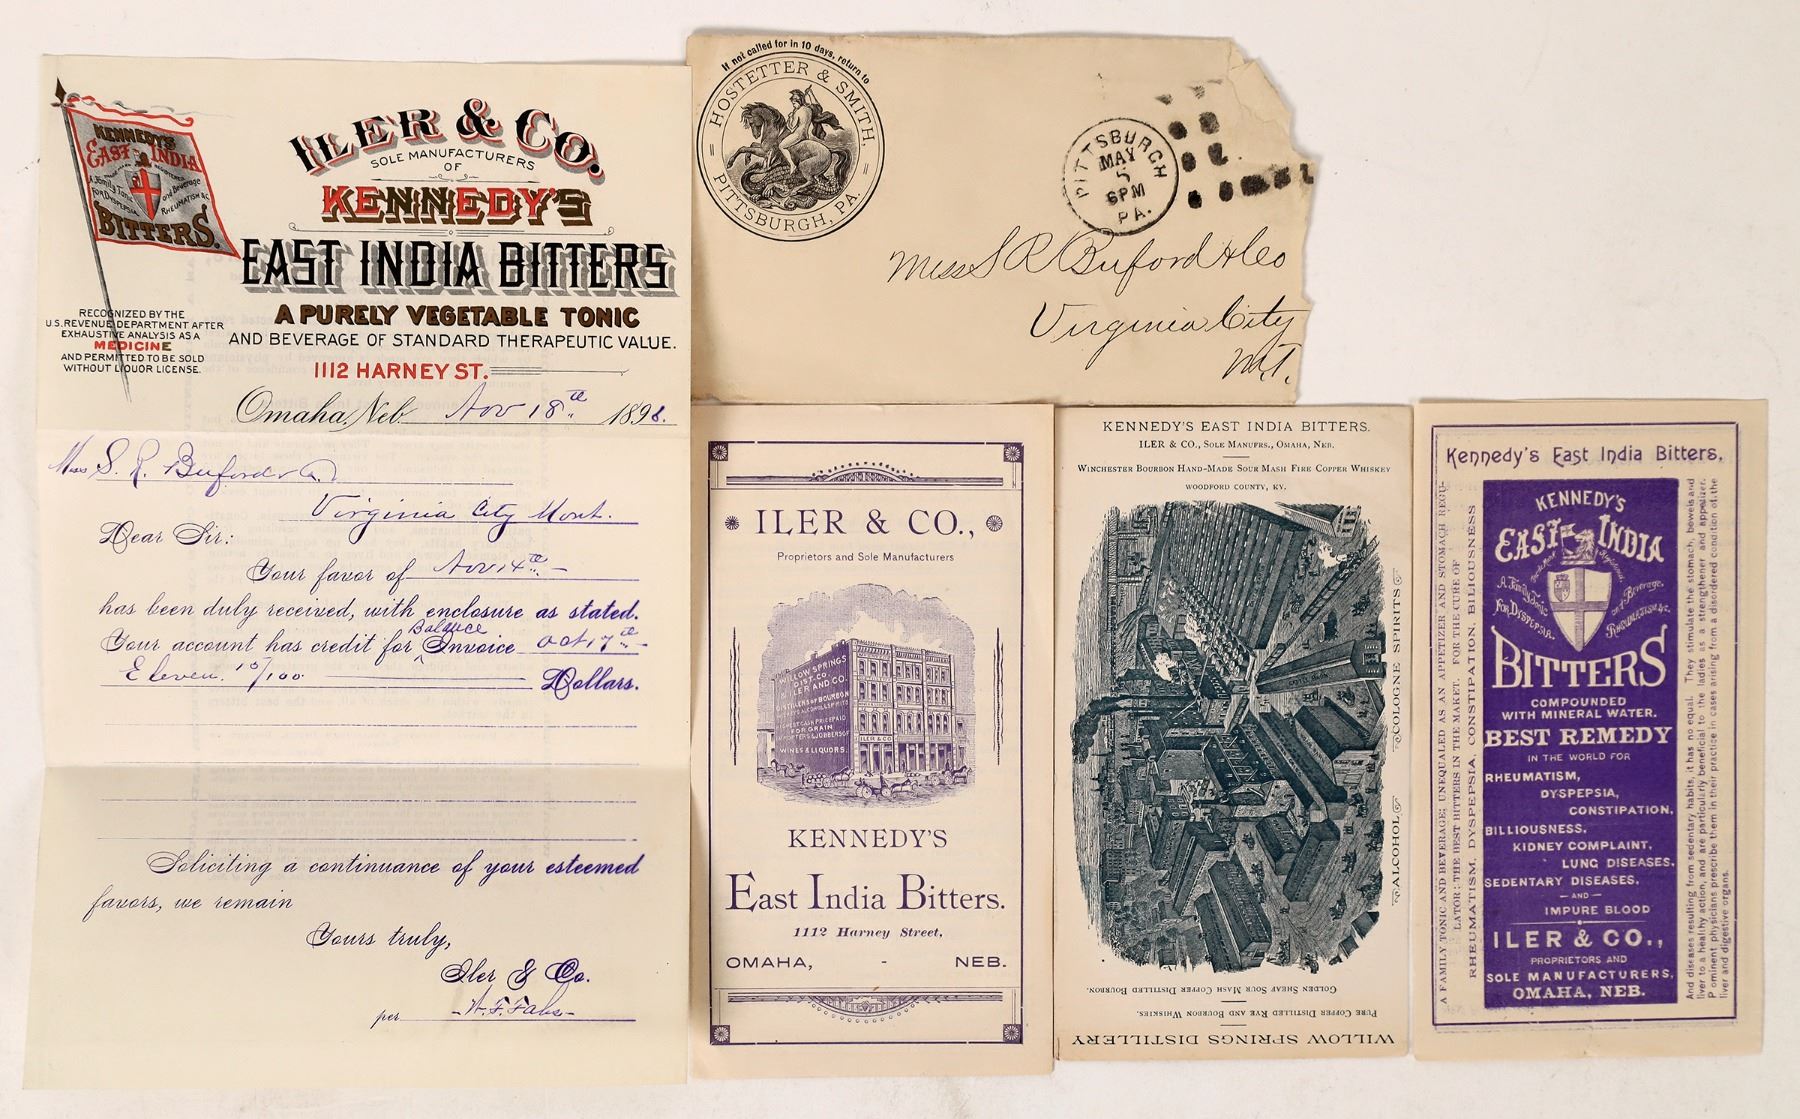 KENNEDY'S
EAST INDIA
TRADE MARK REGISTERED
A Family Tonic and Beverage
FOR DYSPEPSIA RHEUMATISM &C
BITTERS.
ILER & CO.
SOLE MANUFACTURERS
OF
KENNEDY'S
EAST INDIA BITTERS
A PURELY VEGETABLE TONIC
AND BEVERAGE OF STANDARD THERAPEUTIC VALUE.
1112 HARNEY ST.
RECOGNIZED BY THE
U.S. REVENUE DEPARTMENT AFTER
EXHAUSTIVE ANALYSIS AS A
MEDICINE
AND PERMITTED TO BE SOLD
WITHOUT LIQUOR LICENSE.
Omaha, Neb. Nov 18th 1898.
Mess S. R. Buford & Co
Virginia City Mont.
Dear Sir:
Your favor of Nov 14th
has been duly received, with enclosure as stated.
Balance
Your account has credit for Invoice Oct 17th
Eleven 10/100 Dollars.
Soliciting a continuance of your esteemed
favors, we remain
Yours truly,
Iler & Co.
per
If not called for in 10 days, return to
HOSTETTER & SMITH,
PITTSBURGH, PA.
PITTSBURGH
MAY
5
6PM
PA.
Mess S R Buford & Co
Virginia City
M.T.
ILER & CO.,
Proprietors and Sole Manufacturers
WILLOW SPRINGS
DIST. CO.
ILER AND CO.
DISTILLERS OF BOURBON
HIGHEST CASH PRICE PAID
FOR GRAIN
IMPORTERS & JOBBERS OF
WINES & LIQUORS.
ILER & CO
KENNEDY'S
East India Bitters.
1112 Harney Street,
OMAHA, - NEB.
KENNEDY'S EAST INDIA BITTERS.
ILER & CO., SOLE MANUFRS., OMAHA, NEB.
WINCHESTER BOURBON HAND-MADE SOUR MASH FIRE COPPER WHISKEY
WOODFORD COUNTY, KY.
COLOGNE SPIRITS
ALCOHOL
GOLDEN SHEAF SOUR MASH COPPER DISTILLED BOURBON.
PURE COPPER DISTILLED RYE AND BOURBON WHISKIES.
WILLOW SPRINGS DISTILLERY
Kennedy's East India Bitters.
A FAMILY TONIC AND BEVERAGE; UNEQUALED AS AN APPETIZER AND STOMACH REGU-
LATOR; THE BEST BITTERS IN THE MARKET. FOR THE CURE OF
RHEUMATISM, DYSPEPSIA, CONSTIPATION, BILIOUSNESS
KENNEDY'S
EAST INDIA
Trade Mark Registered
A Family Tonic and Beverage,
FOR DYSPEPSIA, RHEUMATISM &c.
BITTERS
COMPOUNDED
WITH MINERAL WATER.
BEST REMEDY
IN THE WORLD FOR
RHEUMATISM,
DYSPEPSIA,
CONSTIPATION,
BILLIOUSNESS,
KIDNEY COMPLAINT,
LUNG DISEASES,
SEDENTARY DISEASES,
—AND—
IMPURE BLOOD
ILER & CO.,
PROPRIETORS AND
SOLE MANUFACTURERS,
OMAHA, NEB.
And diseases resulting from sedentary habits, it has no equal. They stimulate the stomach, bowels and
liver to a healthy action, and are particularly beneficial to the ladies as a strengthener and appetizer.
Prominent physicians prescribe them in their practice in cases arising from a disordered condition of the
liver and digestive organs.